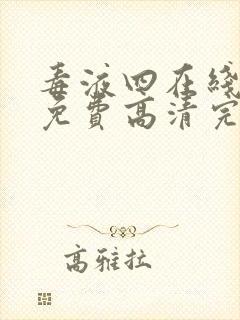 毒液四在线
免費高清完
高雅拉